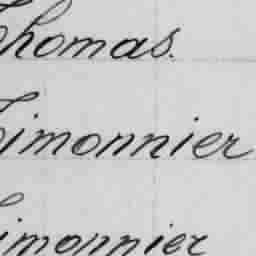 Thomas.
Timonnier
Simonnier